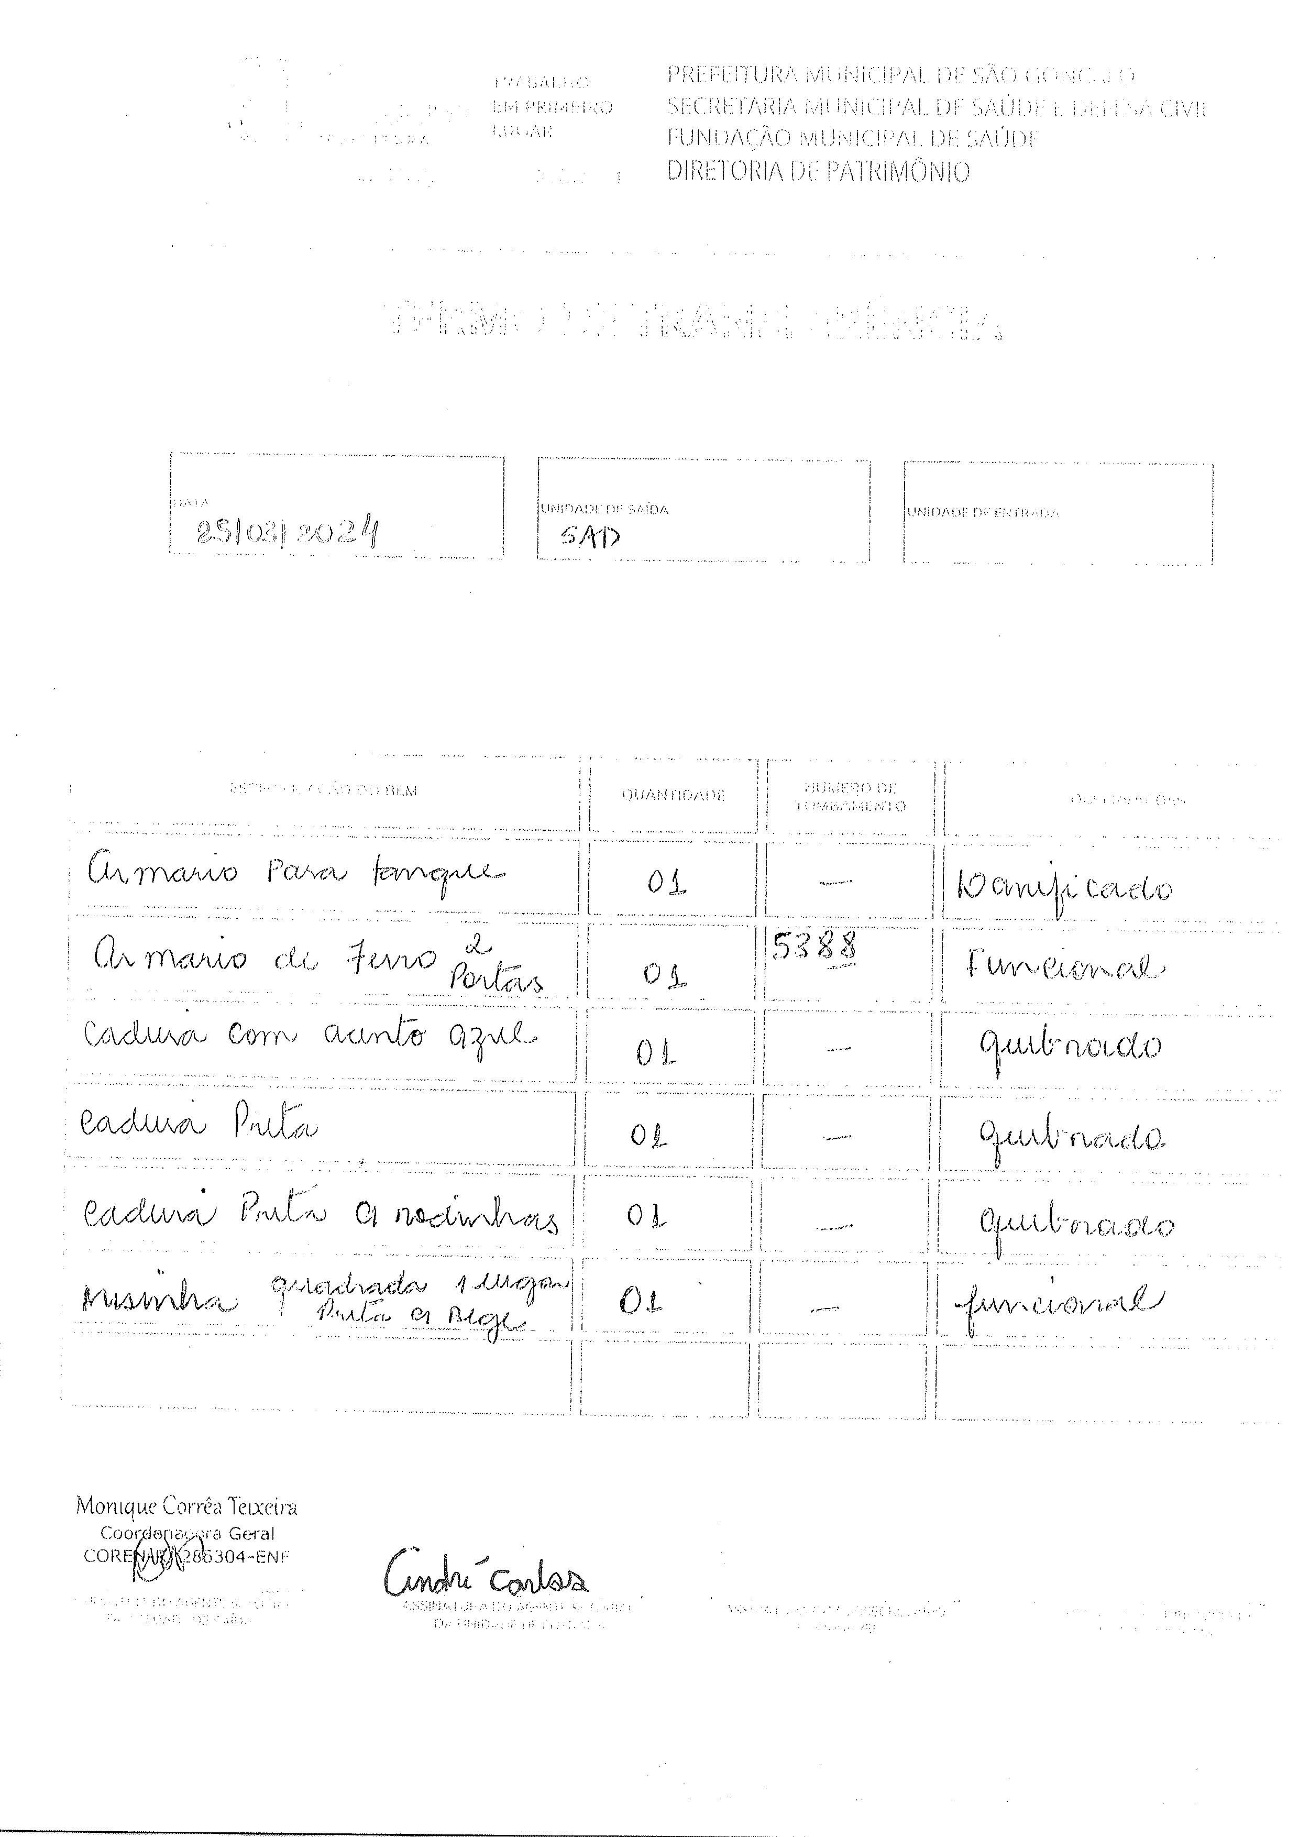 TRABALHO
EM PRIMEIRO
LUGAR
PREFEITURA MUNICIPAL DE SÃO GONÇALO
SECRETARIA MUNICIPAL DE SAÚDE E DEFESA CIVIL
FUNDAÇÃO MUNICIPAL DE SAÚDE
DIRETORIA DE PATRIMÔNIO
TERMO DE TRANSFERÊNCIA
DATA
25/03/2024
UNIDADE DE SAÍDA
SAD
UNIDADE DE ENTRADA
ESPECIFICAÇÃO DO BEM QUANTIDADE NÚMERO DE TOMBAMENTO
Armario Para tanque 01 — Danificado
Armario de Ferro 2 Portas 01 5388 Funcional
Cadeira com acento azul 01 — quebrado
Cadeira Preta 01 — quebrado
Cadeira Preta C/ rodinhas 01 — quebrado
Mesinha quadrada 1 lugar Preta C/ Bege 01 — funcional
Monique Corrêa Teixeira
Coordenadora Geral
286304-ENF
André Carlos